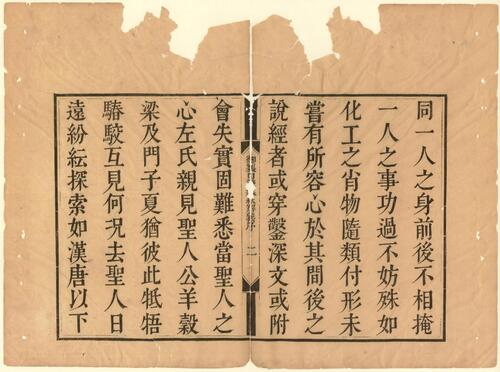 同一人之身前後不相掩
一人之事功過不妨殊如
化工之肖物隨類付形未
嘗有所容心於其間後之
說經者或穿鑿深文或附
會失實固難悉當聖人之
心左氏親見聖人公羊榖
梁及門子夏猶彼此牴牾
駁互見何况去聖人日
遠紛紜探索如漢唐以下
二